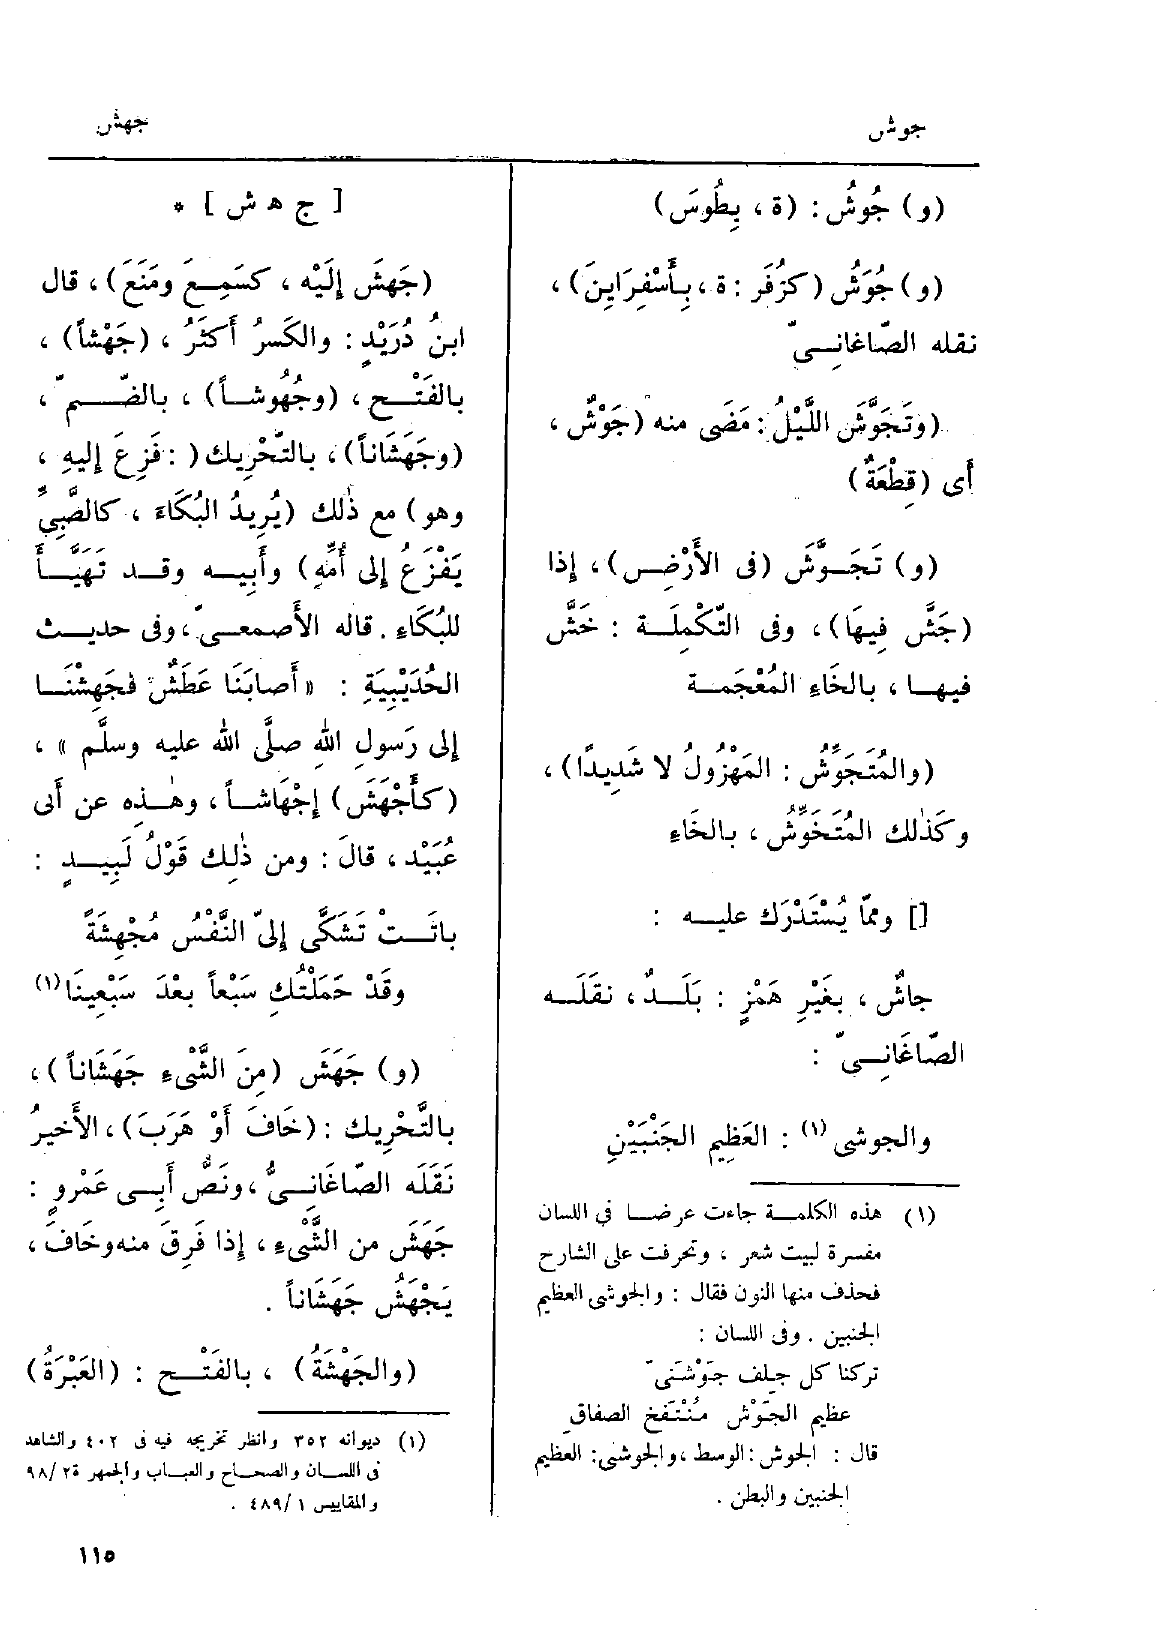 جوش
جهش
(و) جُوشُ: (ة، بِطُوسَ)
(و) جُوَشُ (كزُفَر: ة، بِأَسْفِرَايِنَ)،
نقله الصّاغانِىّ
(وتَجَوَّشَ اللَّيْلُ: مَضَى منه (جَوْشٌ،
أى (قِطْعَةٌ)
(و) تَجَوَّشَ (فى الأَرْضِ)، إذا
(جَشَّ فِيهَا)، وفى التّكْمِلَة: خَشَّ
فيها، بالخَاءِ المُعْجَمة
(والمُتَجَوِّشُ: المَهْزُولُ لا شَدِيدًا)،
وكَذٰلك المُتَخَوِّشُ، بالخَاءِ
[] وممّا يُسْتَدْرَك عليه:
جاشٌ، بغَيْرِ هَمْزٍ: بَلَدٌ، نقَلَه
الصّاغَانِىّ:
والجوشى (١): العَظِيم الجَنْبَيْنِ
(١) هذه الكلمة جاءت عرضا فى اللسان
مفسرة لبيت شعر، وتحرفت على الشارح
فحذف منها النون فقال: والجوشى العظيم
الجنبين. وفى اللسان:
تركنا كل جلف جَوْشَنىّ
عظيم الجَوْش مُنْتَفخ الصفاق
قال: الجوش: الوسط، والجوشنى: العظيم
الجنبين والبطن.
[ ج ه ش ] *
(جَهشَ إِلَيْه، كسَمِعَ ومَنَعَ)، قال
ابنُ دُرَيْدٍ: والكَسرُ أَكثَرُ، (جَهْشاً)،
بالفَتْح، (وجُهُوشاً)، بالضّمّ،
(وجَهَشَاناً)، بالتّحْرِيك (: فَزِعَ إليهِ،
وهو) مع ذٰلك (يُرِيدُ البُكَاءَ، كالصَّبِىِّ
يَفْزَعُ إلى أُمِّهِ) وأَبيه وقد تَهَيَّأَ
للبُكَاءِ. قاله الأَصمعىّ، وفى حديث
الحُدَيْبِيَةِ: «أَصابَنَا عَطَشٌ فجَهِشْنَا
إلى رَسولِ اللهِ صلَّى الله عليه وسلَّم»،
(كأَجْهَشَ) إِجْهَاشاً، وهٰذِه عن أَبى
عُبَيْد، قالَ: ومن ذٰلِك قَوْلُ لَبِيدٍ:
باتَتْ تَشَكَّى إلىّ النَّفْسُ مُجْهِشَةً
وقَدْ حَمَلْتُكِ سَبْعاً بعْدَ سَبْعِينَا(١)
(و) جَهَشَ (مِنَ الشَّىْءِ جَهَشَاناً)،
بالتَّحْرِيك: (خَافَ أَوْ هَرَبَ)، الأَخيرُ
نَقَلَه الصّاغَانِىُّ، ونَصُّ أَبِى عَمْرٍو:
جَهَشَ من الشَّىْءِ، إذا فَرِقَ منه وخَافَ،
يَجْهَشُ جَهَشَاناً.
(والجَهْشَةُ)، بالفَتْح: (العَبْرَةُ)
(١) ديوانه ٣٥٢ وانظر تخريجه فيه فى ٤٠٢ والشاهد
فى اللسان والصحاح والعباب والجمهرة ٢/٩٨
والمقاييس ١/٤٨٩.
١١٥